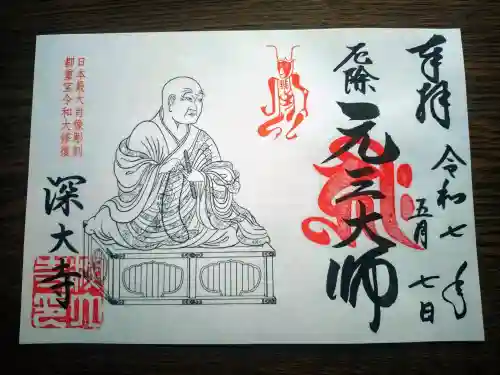 奉拝
令和七年
五月七日
厄除
元三大師
日本最大肖像彫刻
御尊像令和大修復
深大寺